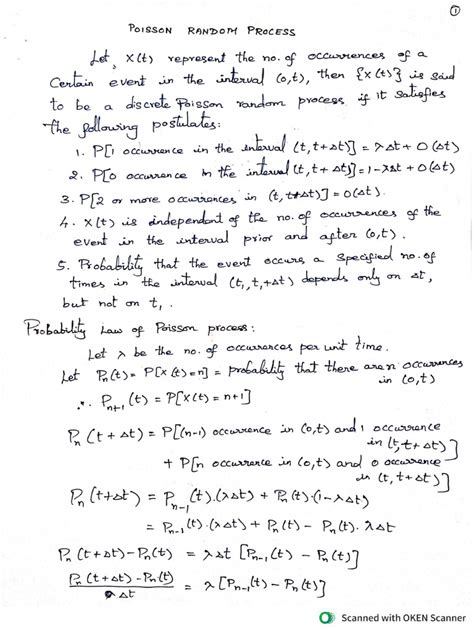 ①
POISSON RANDOM PROCESS
Let, X(t) represent the no. of occurrences of a
Certain event in the interval (0,t), then {X(t)} is said
to be a discrete Poisson random process if it satisfies
the following postulates:
1. P[1 occurrence in the interval (t, t+Δt)] = λΔt + O(Δt)
2. P[0 occurrence in the interval (t, t+Δt)] = 1-λΔt + O(Δt)
3. P[2 or more occurrences in (t, t+Δt)] = O(Δt).
4. X(t) is independent of the no. of occurrences of the
event in the interval prior and after (0,t).
5. Probability that the event occurs a specified no. of
times in the interval (t₁, t₁+Δt) depends only on Δt,
but not on t₁.
Probability Law of Poisson process:
Let λ be the no. of occurrences per unit time.
Let Pₙ(t) = P[X(t)=n] = probability that there are n occurrences
in (0,t)
∴ Pₙ₊₁(t) = P[X(t) = n+1]
Pₙ(t+Δt) = P[(n-1) occurrence in (0,t) and 1 occurrence
in (t, t+Δt)]
+ P[n occurrence in (0,t) and 0 occurrence
in (t, t+Δt)]
Pₙ(t+Δt) = Pₙ₋₁(t).(λΔt) + Pₙ(t).(1-λΔt)
= Pₙ₋₁(t).(λΔt) + Pₙ(t) - Pₙ(t).λΔt
Pₙ(t+Δt) - Pₙ(t) = λΔt [Pₙ₋₁(t) - Pₙ(t)]
Pₙ(t+Δt) - Pₙ(t) / Δt = λ[Pₙ₋₁(t) - Pₙ(t)]
Scanned with OKEN Scanner